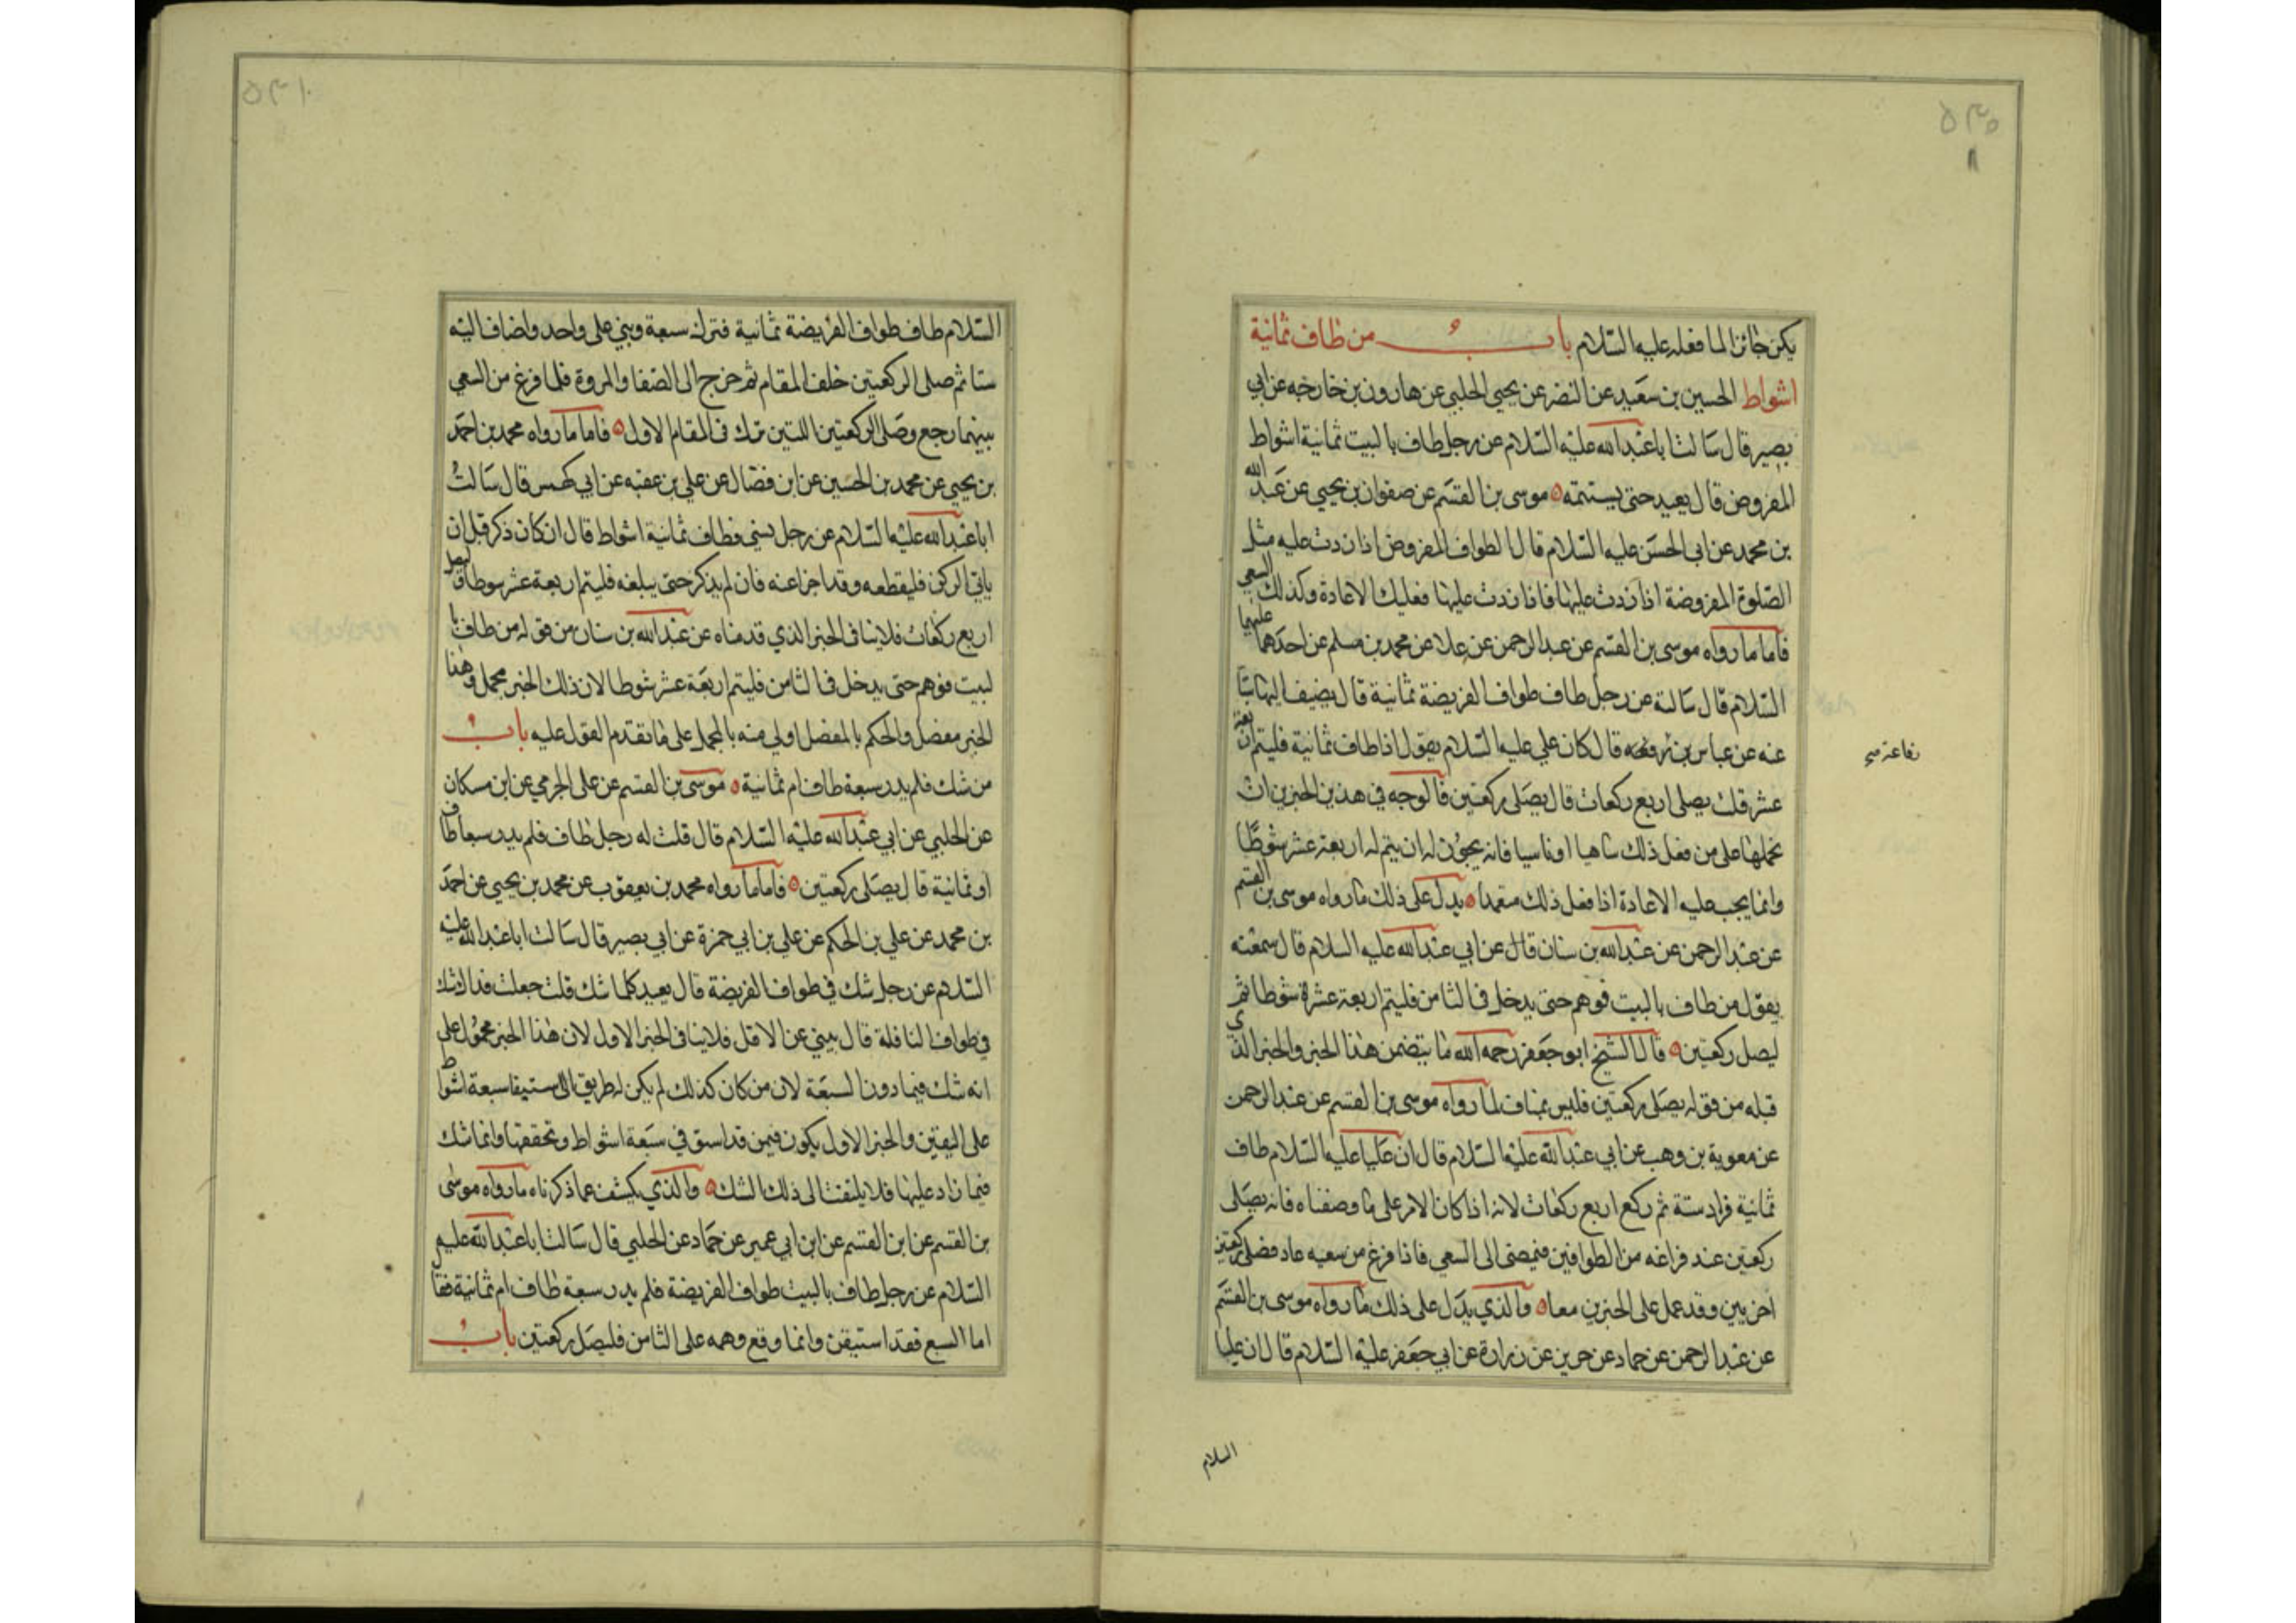 يكن جائزا لما فعله عليه السلام باب من طاف ثمانية
اشواط الحسين بن سعيد عن النضر عن يحيى الحلبي عن هارون بن خارجه عن ابي
بصير قال سالت ابا عبد الله عليه السلام عن رجل طاف بالبيت ثمانية اشواط
المفروض قال يعيد حتى يستتمه موسى بن القسم عن صفوان بن يحيى عن عبد الله
بن محمد عن ابى الحسن عليه السلام قال الطواف المفروض اذا زدت عليه مثل
الصلوة المفروضة اذا زدت عليها فاذا زدت عليها فعليك الاعادة وكذلك السعي
فاما ما رواه موسى بن القسم عن عبد الرحمن عن علا عن محمد بن مسلم عن احدهما عليهما
السلام قال سالته عن رجل طاف طواف الفريضة ثمانية قال يضيف اليها ستا
عنه عن عباس بن قال كان علي عليه السلام يقول اذا طاف ثمانية فليتم اربعة
عشر قلت يصلي اربع ركعات قال يصلى ركعتين فالوجه في هذين الخبرين ان
نحملها على من فعل ذلك ساهيا او ناسيا فانه يجوز له ان يتم له اربعة عشر شوطا
وانما يجب عليه الاعادة اذا فعل ذلك متعمدا يدل على ذلك ما رواه موسى بن القسم
عن عبد الرحمن عن عبد الله بن سنان قال عن ابي عبد الله عليه السلام قال سمعته
يقول من طاف بالبيت فوهم حتى يدخل في الثامن فليتم اربعة عشرة شوطا ثم
ليصل ركعتين قال الشيخ ابو جعفر رحمه الله ما يتضمن هذا الخبر والخبر الذي
قبله من قوله يصلى ركعتين فليس بمناف لما رواه موسى بن القسم عن عبد الرحمن
عن معوية بن وهب عن ابي عبد الله عليه السلام قال ان عليا عليه السلام طاف
ثمانية فزاد ستة ثم ركع اربع ركعات لانه اذا كان الامر على ما وصفناه فانه يصلى
ركعتين عند فراغه من الطوافين فيمضى الى السعي فاذا فرغ من سعيه عاد فصلى ركعتين
اخريين وقد عمل على الخبرين معا والذي يدل على ذلك ما رواه موسى بن القسم
عن عبد الرحمن عن حماد عن حريز عن زرارة عن ابي جعفر عليه السلام قال ان عليا
السلام
السلام طاف طواف الفريضة ثمانية فترك سبعة وبنى على واحد واضاف اليه
ستا ثم صلى الركعتين خلف المقام ثم خرج الى الصفا والمروة فلما فرغ من السعي
بينهما رجع وصلى الركعتين اللتين ترك في المقام الاول فاما ما رواه محمد بن احمد
بن يحيى عن محمد بن الحسين عن ابن فضال عن علي بن عقبه عن ابي كهمس قال سالت
ابا عبد الله عليه السلام عن رجل نسي فطاف ثمانية اشواط قال ان كان ذكر قبل ان
ياتي الركن فليقطعه وقد اجزا عنه فان لم يذكر حتى يبلغه فليتم اربعة عشر شوطا وليصل
اربع ركعات فلا ينافى الخبر الذي قدمناه عن عبد الله بن سنان من قوله من طاف با
لبيت فوهم حتى يدخل في الثامن فليتم اربعة عشر شوطا لان ذلك الخبر مجمل وهذا
الخبر مفصل والحكم بالمفصل اولى منه بالمجمل على ما تقدم القول عليه باب
من شك فلم يدر سبعة طاف ام ثمانية موسى بن القسم عن على الجرمي عن ابن مسكان
عن الحلبي عن ابي عبد الله عليه السلام قال قلت له رجل طاف فلم يدر سبعا طاف
او ثمانية قال يصلى ركعتين فاما ما رواه محمد بن يعقوب عن محمد بن يحيى عن احمد
بن محمد عن علي بن الحكم عن علي بن ابي حمزة عن ابي بصير قال سالت ابا عبد الله عليه
السلام عن رجل شك في طواف الفريضة قال يعيد كلما شك قلت جعلت فداك شك
في طواف النافلة قال يبني عن الاقل فلا ينافى الخبر الاول لان هذا الخبر محمول على
انه شك فيما دون السبعة لان من كان كذلك لم يكن له طريق الى ستيفا سبعة اشواط
على اليقين والخبر الاول يكون فيمن قد اسبق في سبعة اشواط وتحققها وانما شك
فيما زاد عليها فلا يلتفت الى ذلك الشك والذي يكشف عما ذكرناه ما رواه موسى
بن القسم عن ابن القسم عن ابن ابي عمير عن حماد عن الحلبي قال سالت ابا عبد الله عليه
السلام عن رجل طاف بالبيت طواف الفريضة فلم يدر سبعة طاف ام ثمانية فقال
اما السبع فقد استيقن وانما وقع وهمه على الثامن فليصل ركعتين باب